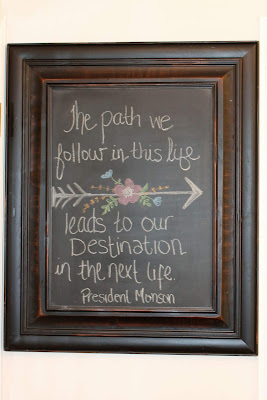 The path we
follow in this life
leads to our
Destination
in the next life.
President Monson